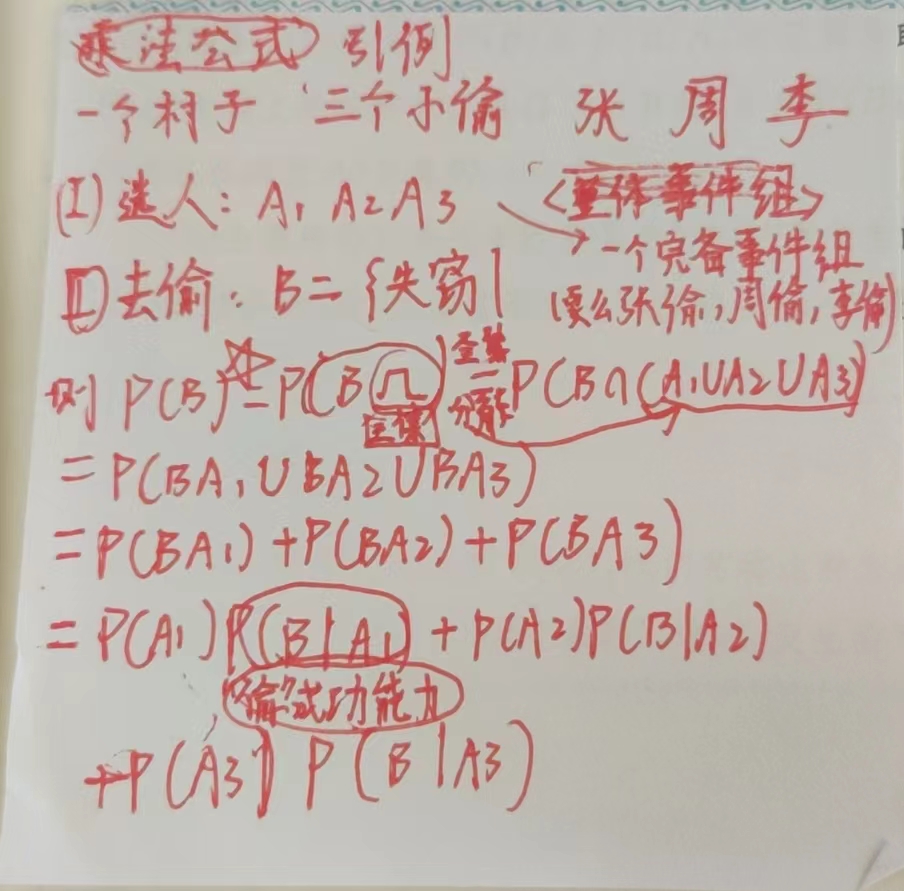 乘法公式 引例
一个村子 三个小偷 张 周 李
(I) 选人: A1 A2 A3 <整体事件组>
一个完备事件组
(II) 去偷: B={失窃}
(要么张偷,周偷,李偷)
则 P(B)=P(BΩ) 全集分解 = P(B∩(A1∪A2∪A3))
全集
=P(BA1∪BA2∪BA3)
=P(BA1)+P(BA2)+P(BA3)
=P(A1)P(B|A1)+P(A2)P(B|A2)
"偷"成功能力
+P(A3)P(B|A3)